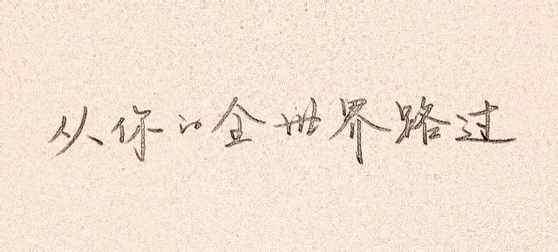 从你的全世界路过